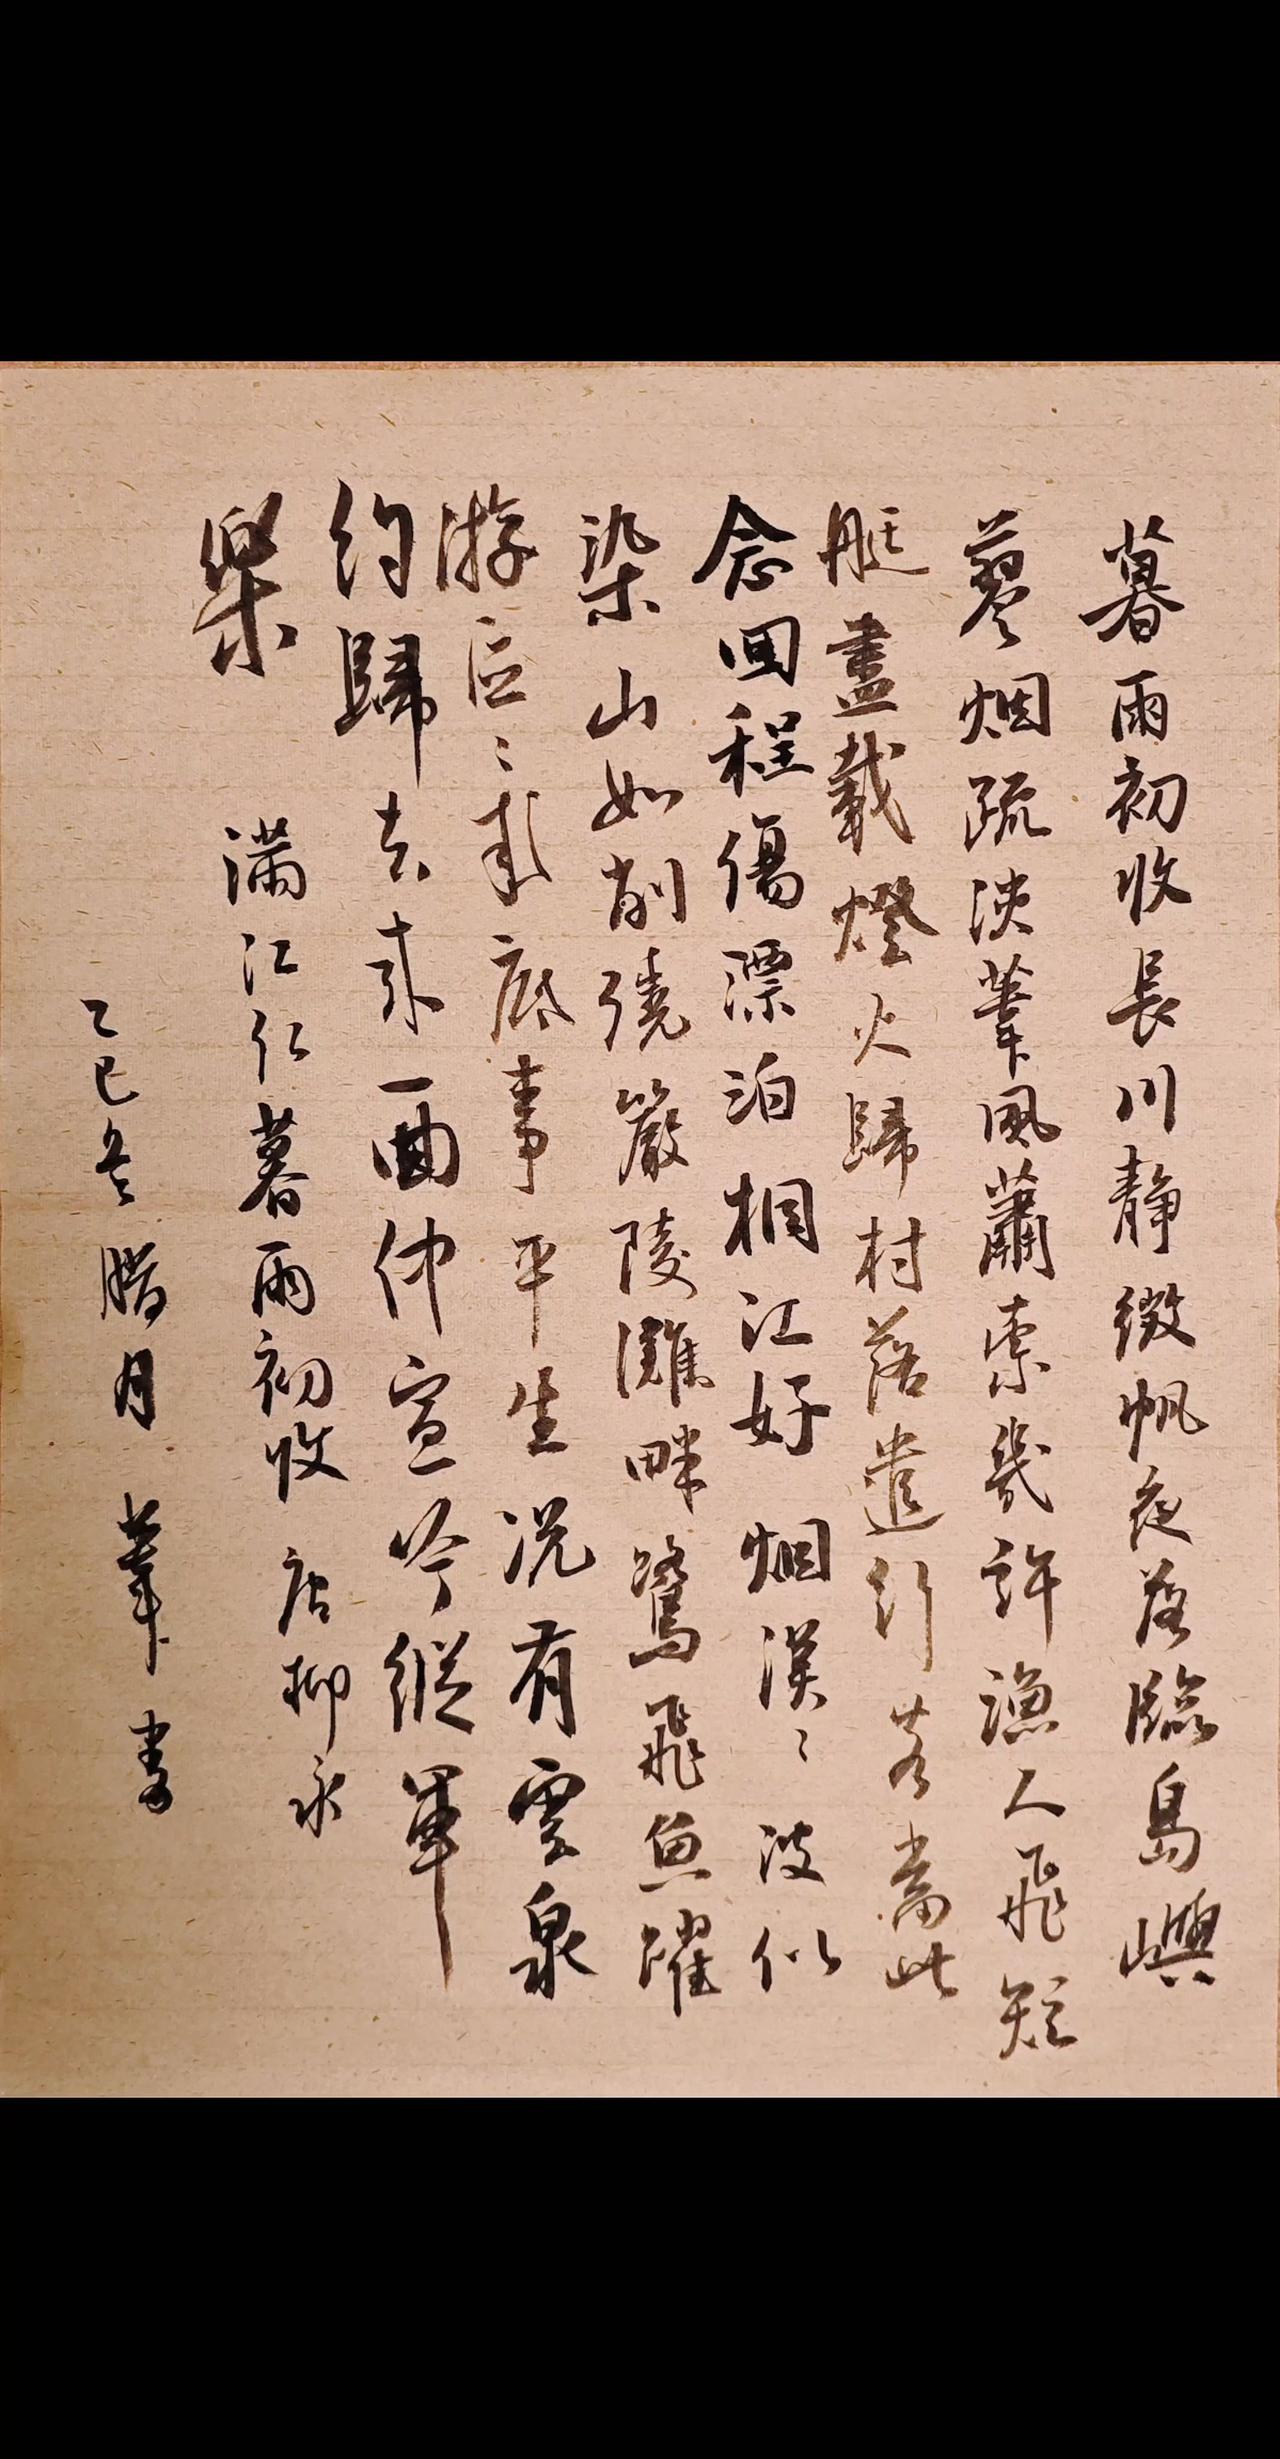 暮雨初收長川靜徵帆夜落臨島嶼
蓼烟疏淡葦風蕭索幾許漁人飛短
艇盡載燈火歸村落遣行客當此
念回程傷漂泊桐江好烟漠〻波似
染山如削繞嚴陵灘畔鷺飛魚躍
游宦〻成底事平生況有雲泉
約歸去來一曲仲宣吟縱軍
樂
滿江红暮雨初收 唐柳永
乙巳冬臘月 葦書